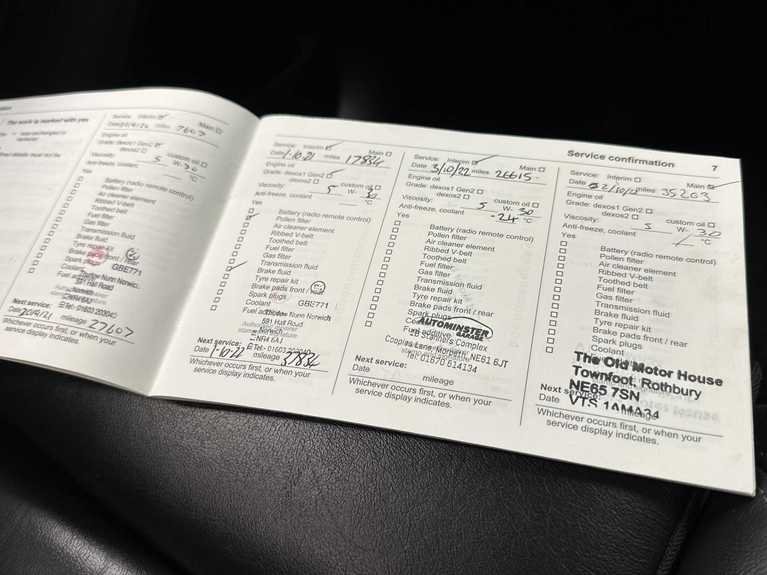 The work is marked with you
Service: Interim
Main
Date miles 7607
Engine oil
Grade: dexos1 Gen2
dexos2
custom oil
Viscosity: 5 W- 30
Anti-freeze, coolant °C
Yes
Battery (radio remote control)
Pollen filter
Air cleaner element
Ribbed V-belt
Toothed belt
Fuel filter
Gas filter
Transmission fluid
Brake fluid
Tyre repair kit
Brake pads front / rear
Spark plugs
Coolant
GBE771
Next service:
Date mileage 27607
Whichever occurs first, or when your
service display indicates.
Service: Interim Main
Date 1-10.21 miles 17834
Engine oil
Grade: dexos1 Gen2
dexos2 custom oil
Viscosity: 5 W- 30
Anti-freeze, coolant °C
Yes
Battery (radio remote control)
Pollen filter
Air cleaner element
Ribbed V-belt
Toothed belt
Fuel filter
Gas filter
Transmission fluid
Brake fluid
Tyre repair kit
Brake pads front / rear
Spark plugs
Coolant
Fuel additive
GBE771
Nunn Norwich
Norwich
Next service:
Date 1-10-22 mileage 37834
Whichever occurs first, or when your
service display indicates.
Service confirmation 7
Service: Interim Main
Date 3/10/22 miles 26615
Engine oil
Grade: dexos1 Gen2
dexos2 custom oil
Viscosity: 5 W- 30
Anti-freeze, coolant -24 °C
Yes
Battery (radio remote control)
Pollen filter
Air cleaner element
Ribbed V-belt
Toothed belt
Fuel filter
Gas filter
Transmission fluid
Brake fluid
Tyre repair kit
Brake pads front / rear
Spark plugs
Coolant
Fuel additive
AUTOMINSTER
GARAGE
Coopies Lane, Morpeth, NE61 6JT
Tel: 01670 514134
Next service:
Date mileage
Whichever occurs first, or when your
service display indicates.
Service: Interim Main
Date miles 35203
Engine oil
Grade: dexos1 Gen2
dexos2 custom oil
Viscosity: 5 W- 30
Anti-freeze, coolant °C
Yes
Battery (radio remote control)
Pollen filter
Air cleaner element
Ribbed V-belt
Toothed belt
Fuel filter
Gas filter
Transmission fluid
Brake fluid
Tyre repair kit
Brake pads front / rear
Spark plugs
Coolant
The Old Motor House
Townfoot, Rothbury
NE65 7SN
Next service:
Date mileage
Whichever occurs first, or when your
service display indicates.